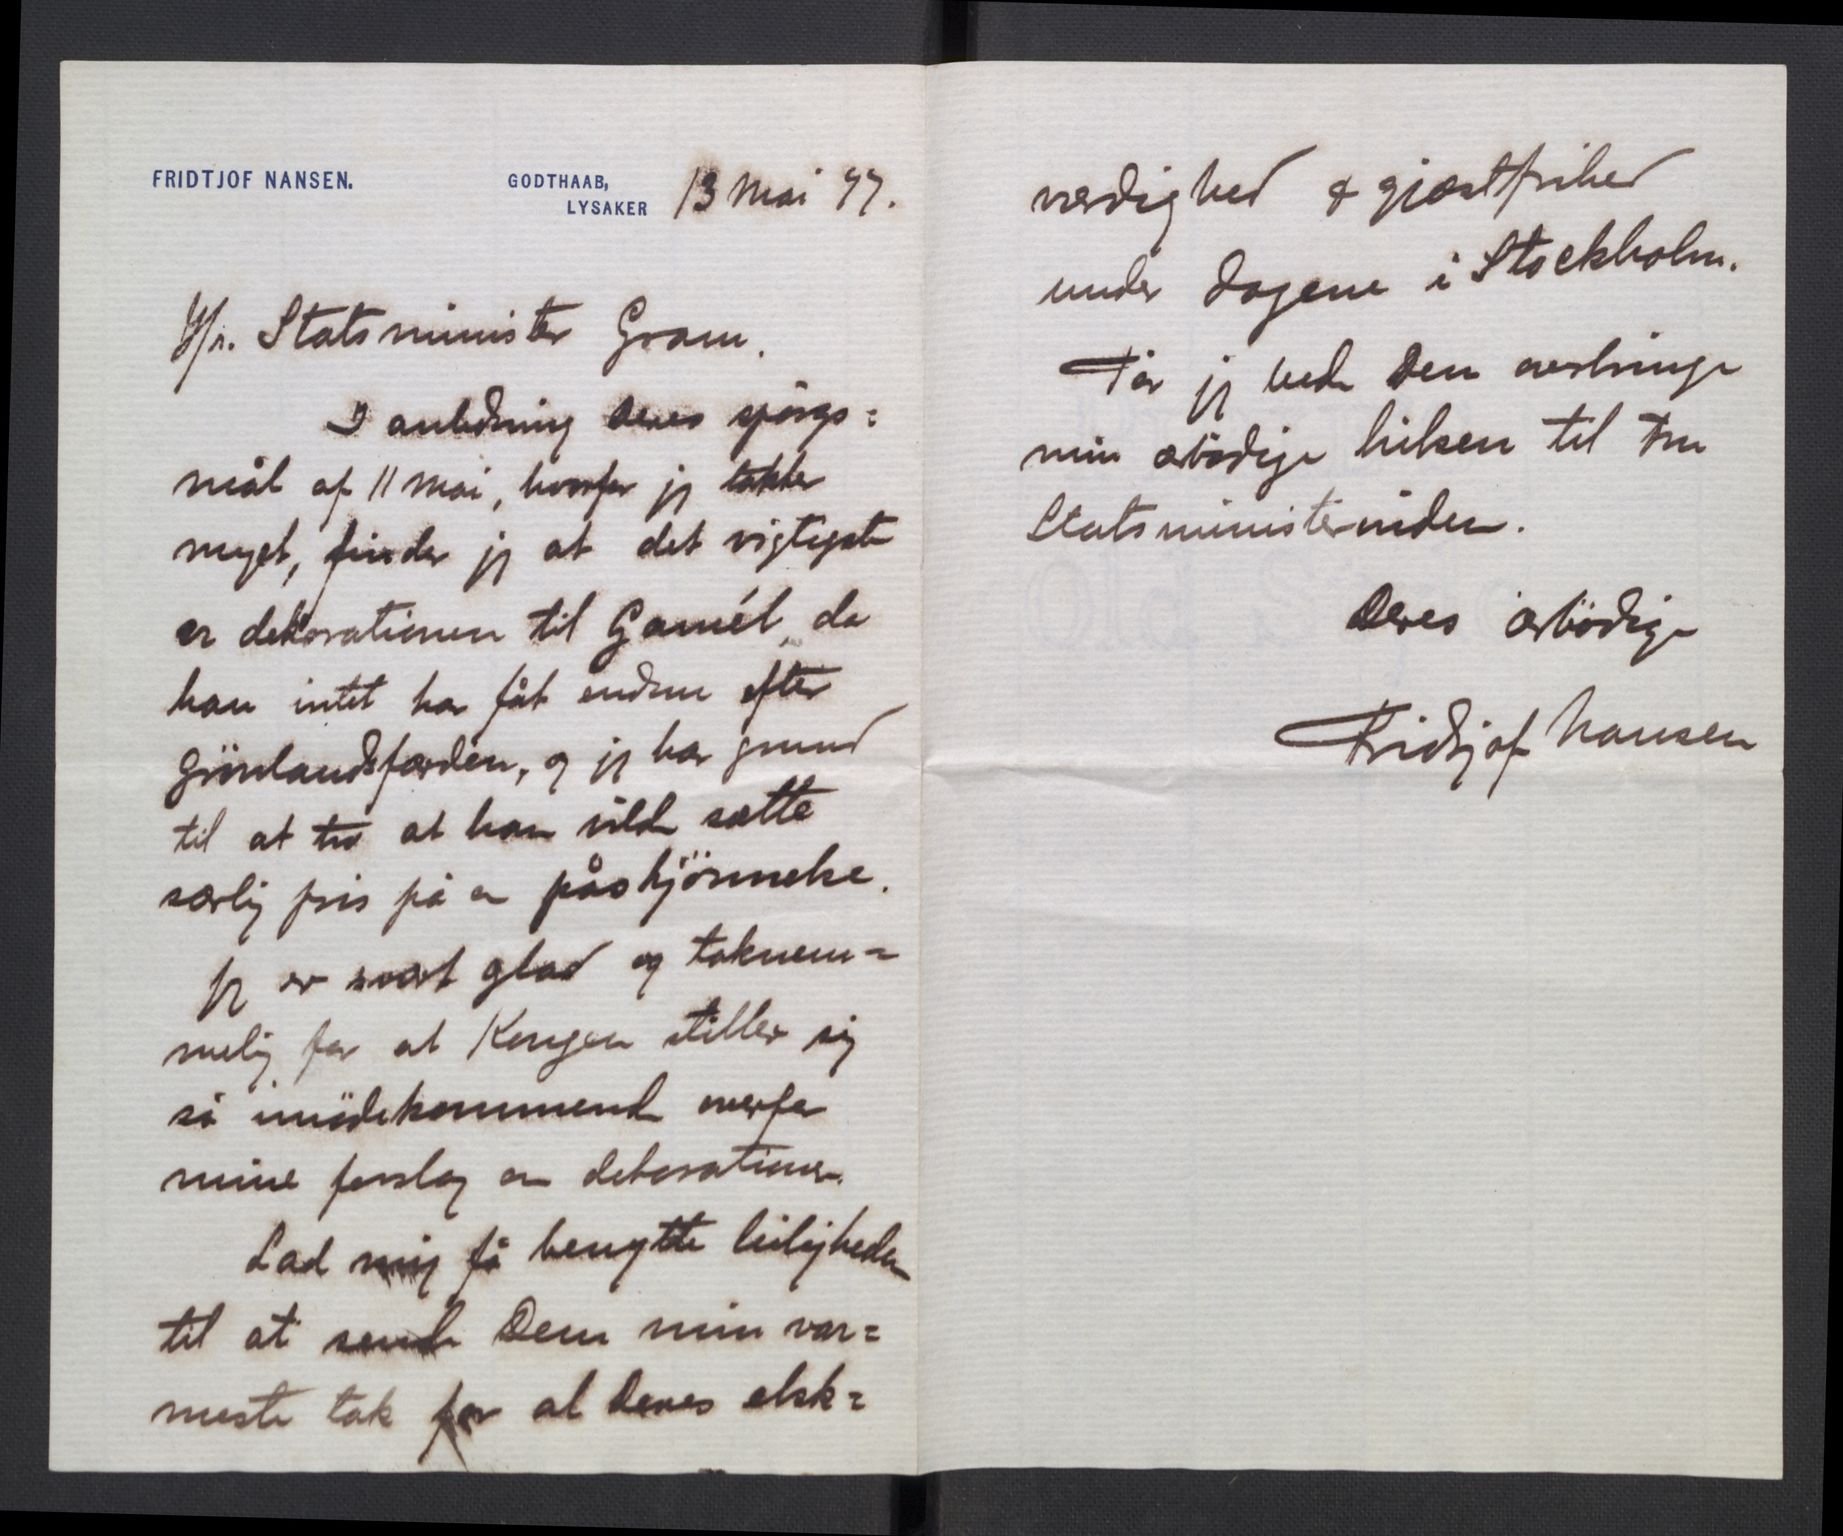 FRIDTJOF NANSEN.
GODTHAAB,
LYSAKER
13 Mai 97.
H/r. Statsminister Gram.
I anledning Deres spörgs=
mål af 11 Mai, hvorfor jeg takker
meget, finder jeg at det vigtigste
er dekorationen til Gamél, da
han intet har fåt endnu efter
Grönlandsfærden, og jeg har grund
til at tro at han vilde sætte
særlig pris på en påskjönnelse.
Jeg er svært glad og taknem=
melig for at Kongen stiller sig
så imödekommende overfor
mine forslag om dekorationer.
Lad mig få benytte leiligheden
til at sende Dem min var=
meste tak for al Deres elsk=
værdighed & gjæstfrihed
under dagene i Stockholm.
Tör jeg bede Dem overbringe
min ærbödige hilsen til Fru
Statsministerinden.
Deres ærbödige
Fridtjof Nansen